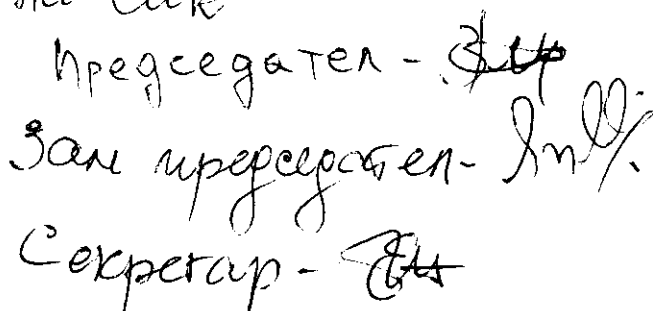 на СИК
Председател -
Зам председател -
Секретар -